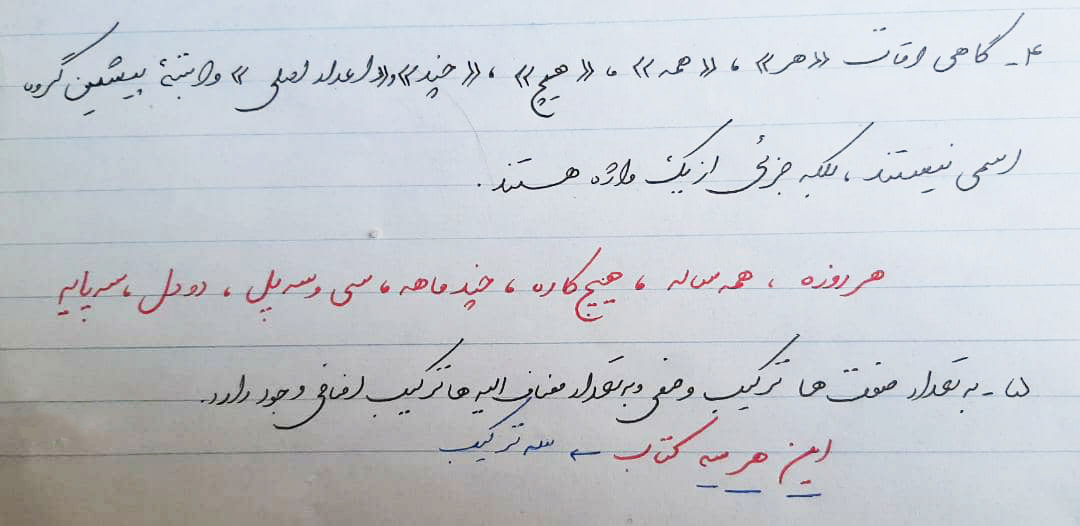 ۴- گاهی اوقات «هر» ، «همه» ، «هیچ» ، «چند» و «اعداد اصلی» وابستهٔ پیشین گروه
اسمی نیستند ، بلکه جزئی از یک واژه هستند .
هر روزه ، همه ساله ، هیچ کاره ، چند ماهه ، سی و سه پل ، دو دل ، سه پایه
۵- به تعداد صفت ها ترکیب وصفی و به تعداد مضاف الیه ها ترکیب اضافی وجود دارد.
این هر سه کتاب ← سه ترکیب